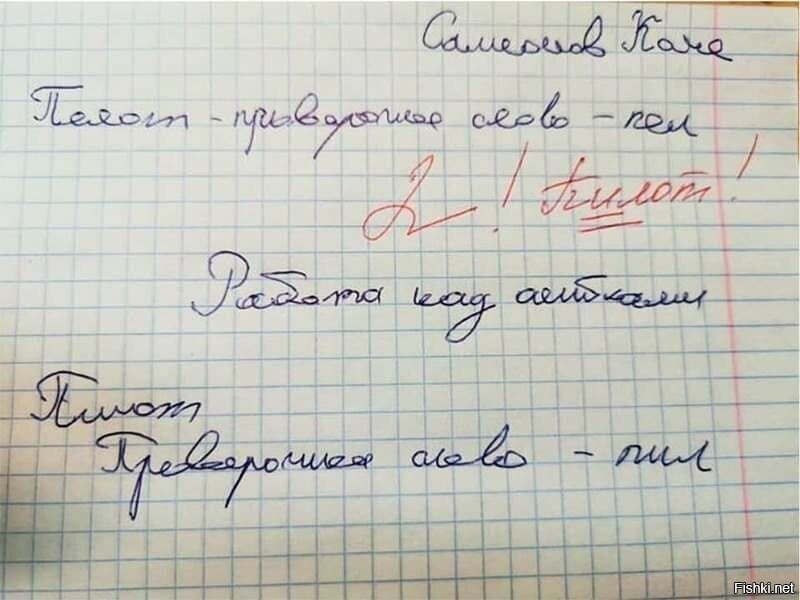 Самсонов Коле
Пелот - прыверочное слово - пел
2! Пилот!
Работа над ашибками
Пилот
Преверочное слово - пил
Fishki.net